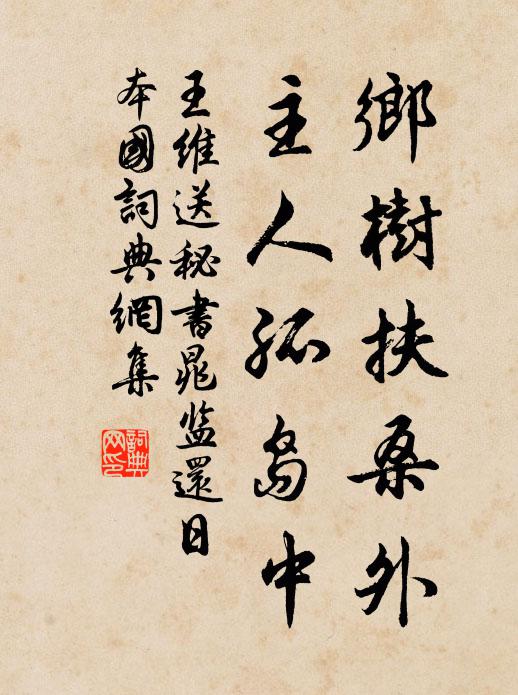 鄉樹扶桑外
主人孤島中
王維送秘書晁监還日
本國詞典網集
詞典
网印